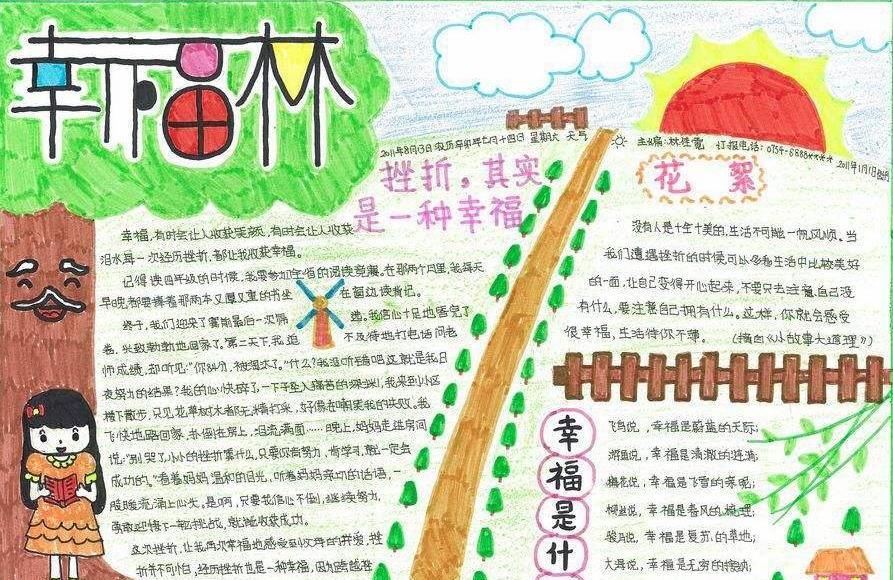 幸福林
2011年8月13日 农历辛卯年七月十四日 星期六 天气 主编:林佳莹 订报电话:0754-6888**** 2011年1月1日创刊
挫折,其实
是一种幸福
幸福,有时会让人收获笑颜,有时会让人收获
泪水,每一次经历挫折,都让我收获幸福。
记得读四年级的时候,我要参加宝恒的阅读竞赛。在那两个月里,我每天
早晚都要捧着那两本又厚又重的书坐在窗边读背记。
终于,我们迎来了赛前最后一次测
卷,兴致勃勃地回家了。第二天下,我迫不及待地打电话问老
师成绩,却听见:"你84分,被淘汰了。""什么?我没听错吧这就是我日
夜努力的结果?我的心快碎了一下子坠入痛苦的深渊,我来到小区
楼下散步,只见花草树木都无精打采,好像在嘲笑我的失败。我
飞快地跑回家,扑倒在房上,泪流满面……晚上,妈妈走进房间
说:"别哭了,小小的挫折算什么,只要你肯努力,肯学习,就一定会
成功的。"看着妈妈温和的目光,听着妈妈亲切的话语,一
股暖流涌上心头。是啊,只要我信心不倒,继续努力,
勇敢迎接下一轮挑战,就能收获成功。
这次挫折,让我再次幸福地感受到父母的关爱,挫
折并不可怕,经历挫折也是一种幸福,因为跨越
花絮
没有人是十全十美的,生活不可能一帆风顺。当
我们遭遇挫折的时候可以多看生活中比较美好
的一面,让自己变得开心起来,不要只去注意自己没
有什么,要注意自己拥有什么。这样,你就会感受
很幸福,生活待你不薄。(摘自《小故事大道理》)
幸福是什
飞鸟说,幸福是蔚蓝的天际;
游鱼说,幸福是清澈的涟漪;
梅花说,幸福是飞雪的亲昵;
柳丝说,幸福是春风的梳理;
骏马说,幸福是夏苏的草地;
大海说,幸福是无穷的接纳;